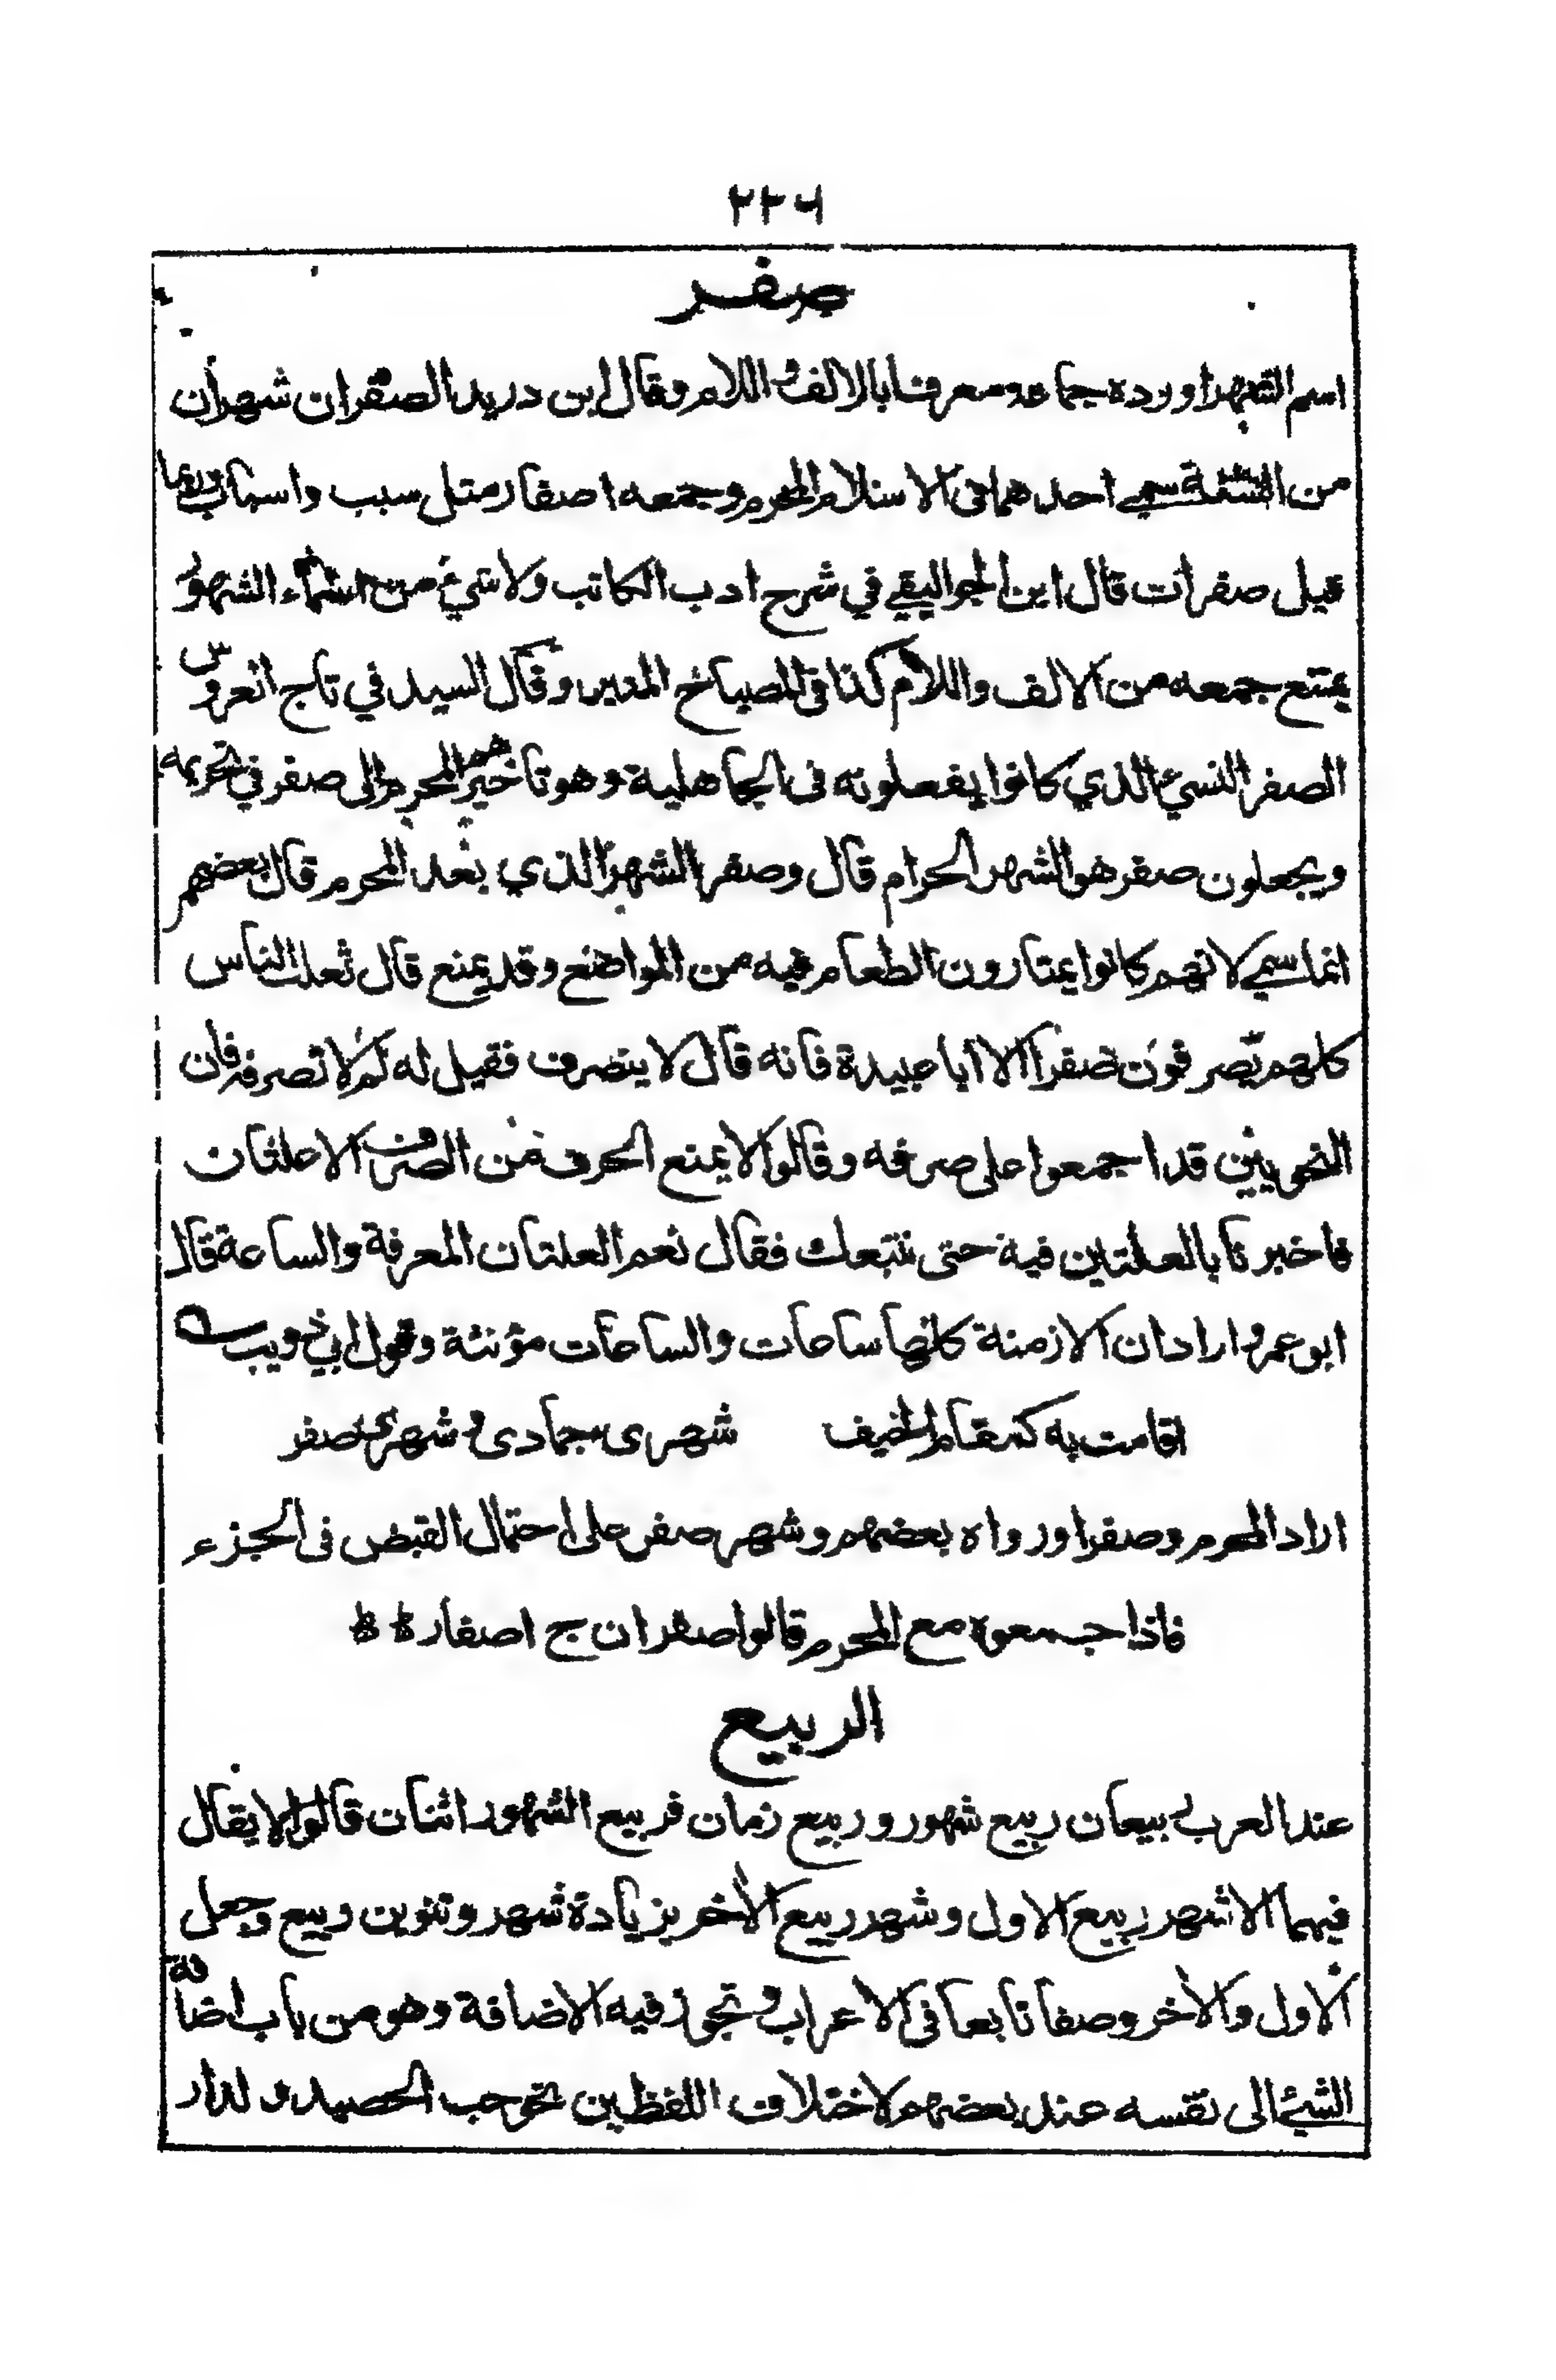 ٢٢٦
صفر
اسم الشهر اورده جماعة معرفا بالالف واللام وقال ابن دريد الصفران شهران
من السنة سمي احدهما فى الاسلام المحرم وجمعه اصفار مثل سبب واسباب وربما
قيل صفرات قال ابن الجواليقي في شرح ادب الكاتب ولا شيء من اسماء الشهور
يمتنع جمعه من الالف واللام كذا فى المصباح المنير وقال السيد في تاج العروس
الصفر النسيء الذي كانوا يفعلونه فى الجاهلية وهو تاخيرهم المحرم الى صفر في تحريمه
ويجعلون صفر هو الشهر الحرام قال وصفر الشهر الذي بعد المحرم قال بعضهم
انما سمي لانهم كانوا يمتارون الطعام فيه من المواضع وقد يمنع قال ثعلب الناس
كلهم يصرفون صفرا الا ابا عبيدة فانه قال لا ينصرف فقيل له لم لا تصرفه فان
النحويين قد اجمعوا على صرفه وقالوا لا يمنع الحرف من الصرف الا علتان
فاخبرنا بالعلتين فيه حتى نتبعك فقال نعم العلتان المعرفة والساعة قال
ابو عمرو اراد ان الازمنة كلها ساعات والساعات مؤنثة وقول ابي ذويب
اقامت به كمقام الحنيف شهرى جمادى وشهري صفر
اراد المحرم وصفرا ورواه بعضهم وشهر صفر على احتمال القبض فى الجزء
فاذا جمعوه مع المحرم قالوا صفران ج اصفار
الربيع
عند العرب ربيعان ربيع شهور وربيع زمان فربيع الشهور اثنان قالوا لا يقال
فيهما الا شهر ربيع الاول وشهر ربيع الاخر بزيادة شهر وتنوين ربيع وجعل
الاول والاخر وصفا تابعا فى الاعراب وتجوز فيه الاضافة وهو من باب اضافة
الشيء الى نفسه عند بعضهم لاختلاف اللفظين نحو حب الحصيد ولدار